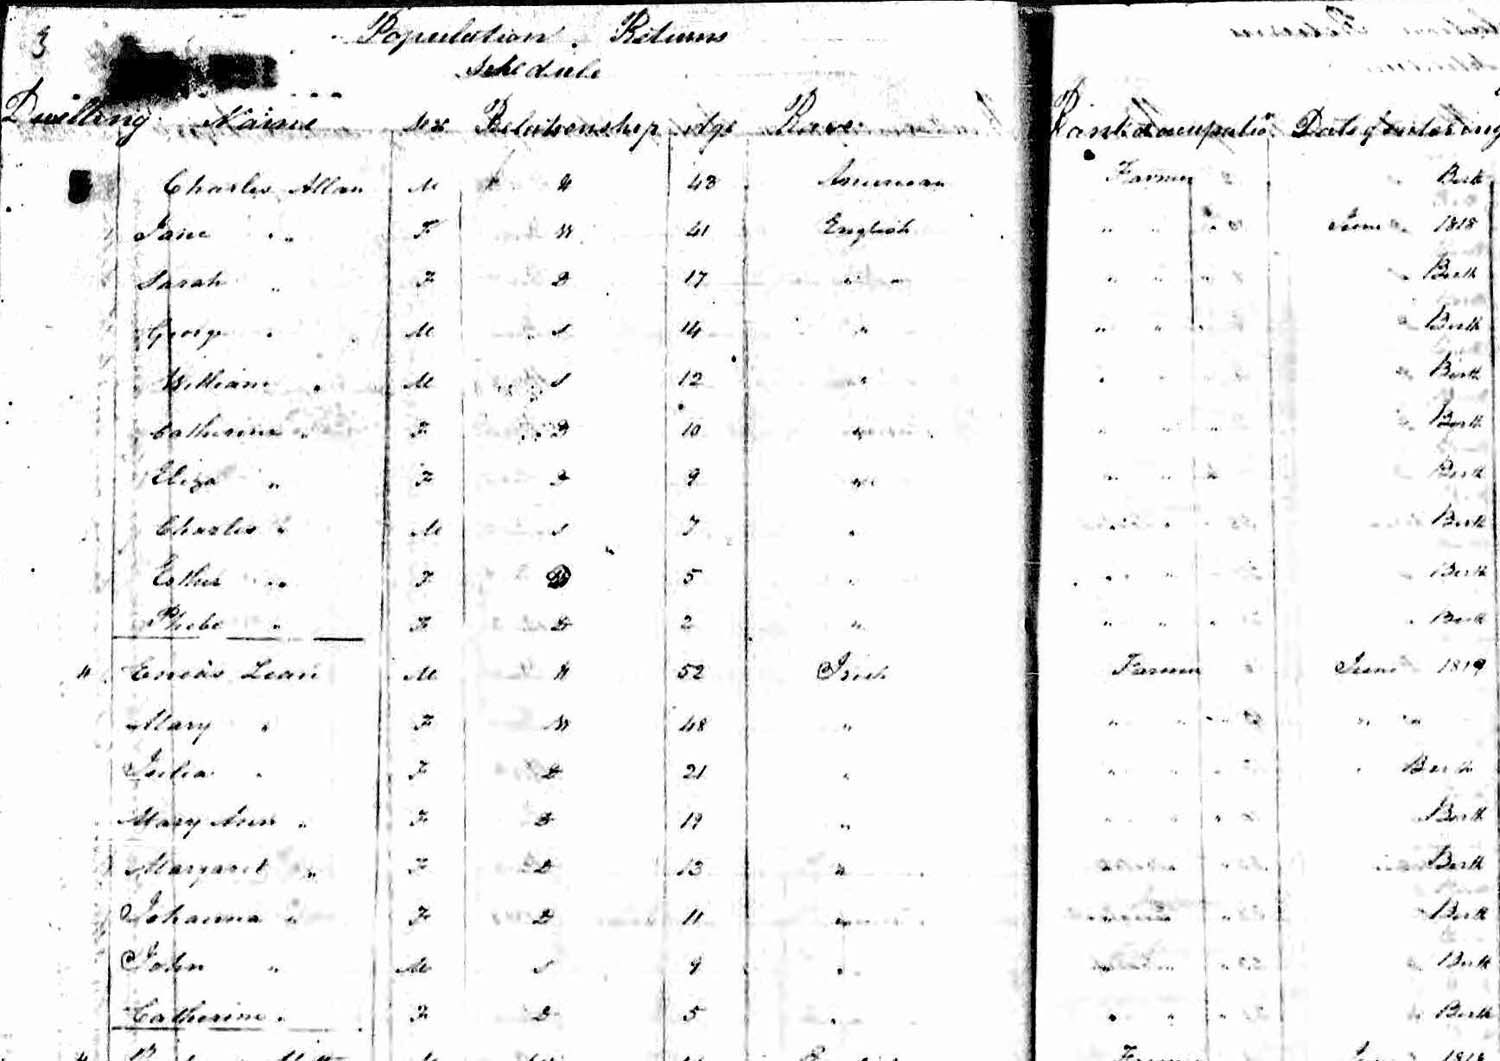 3
Population Returns
Schedule
Dwelling Name Sex Relationship Age Race Rank & occupation Date of entering
Charles Allan M H 43 American Farmer Birth
Jane " F W 41 English " " June 1818
Sarah " F D 17 " " " " Birth
George " M S 14 " " " Birth
William " M S 12 " " " Birth
Catherine " F D 10 " " " Birth
Eliza " F D 9 " " " Birth
Charles " M S 7 " Birth
Esther " F D 5 " " " Birth
Phebe " F D 2 " " " Birth
" Eneas Lean M H 52 Irish Farmer June 1819
Mary " F W 48 " " " " "
Julia " F D 21 " " " Birth
Mary Ann " F D 19 " " " Birth
Margaret " F D 13 " Birth
Johanna " F D 11 " Birth
John " M S 9 " Birth
Catherine " F D 5 " " " Birth